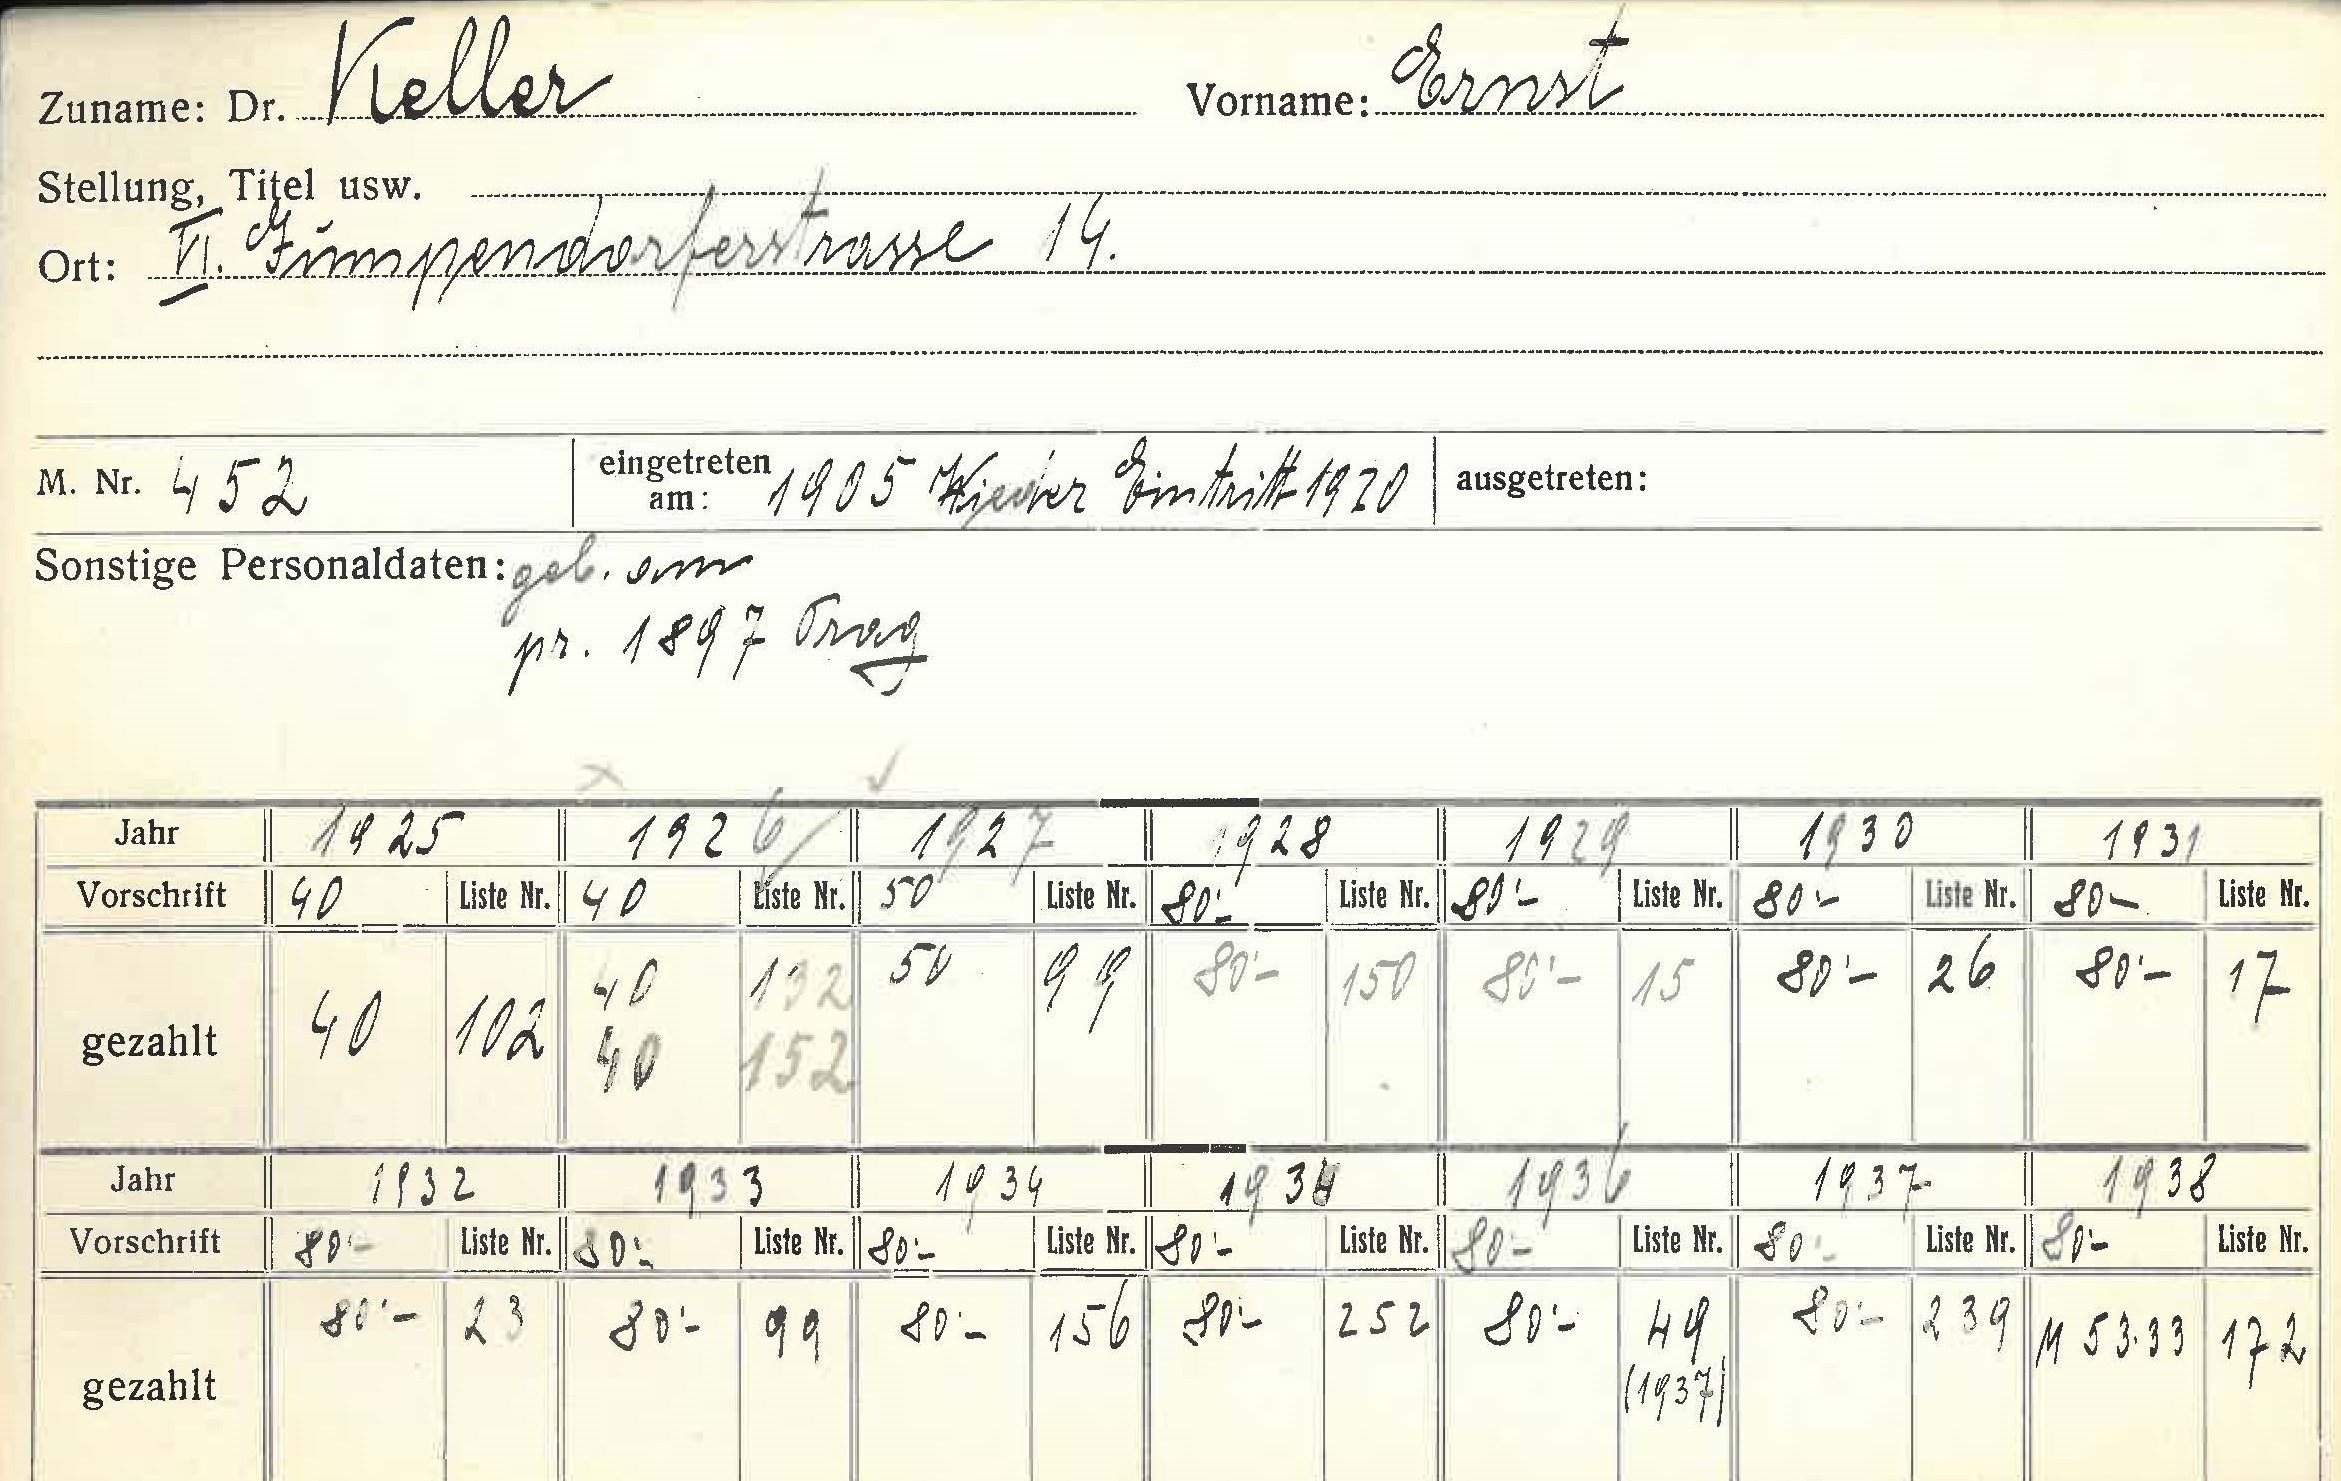 Zuname: Dr. Keller Vorname: Ernst
Stellung, Titel usw.
Ort: VI. Gumpendorferstrasse 14.
M. Nr. 452 eingetreten am: 1905 Wieder Eintritt 1920 ausgetreten:
Sonstige Personaldaten: geb. am
pr. 1897 Prag
Jahr 1925 1926 1927 1928 1929 1930 1931
Vorschrift 40 Liste Nr. 40 Liste Nr. 50 Liste Nr. 80'- Liste Nr. 80'- Liste Nr. 80'- Liste Nr. 80- Liste Nr.
gezahlt 40 102 40 132 50 99 80'- 150 80'- 15 80'- 26 80'- 17
40 152
Jahr 1932 1933 1934 1936 1937 1938
Vorschrift 80'- Liste Nr. 80'- Liste Nr. 80'- Liste Nr. 80'- Liste Nr. 80'- Liste Nr. 80'- Liste Nr. 80'- Liste Nr.
gezahlt 80'- 23 80'- 99 80'- 156 80'- 252 80'- 49 80'- 239 M 53.33 172
(1937)